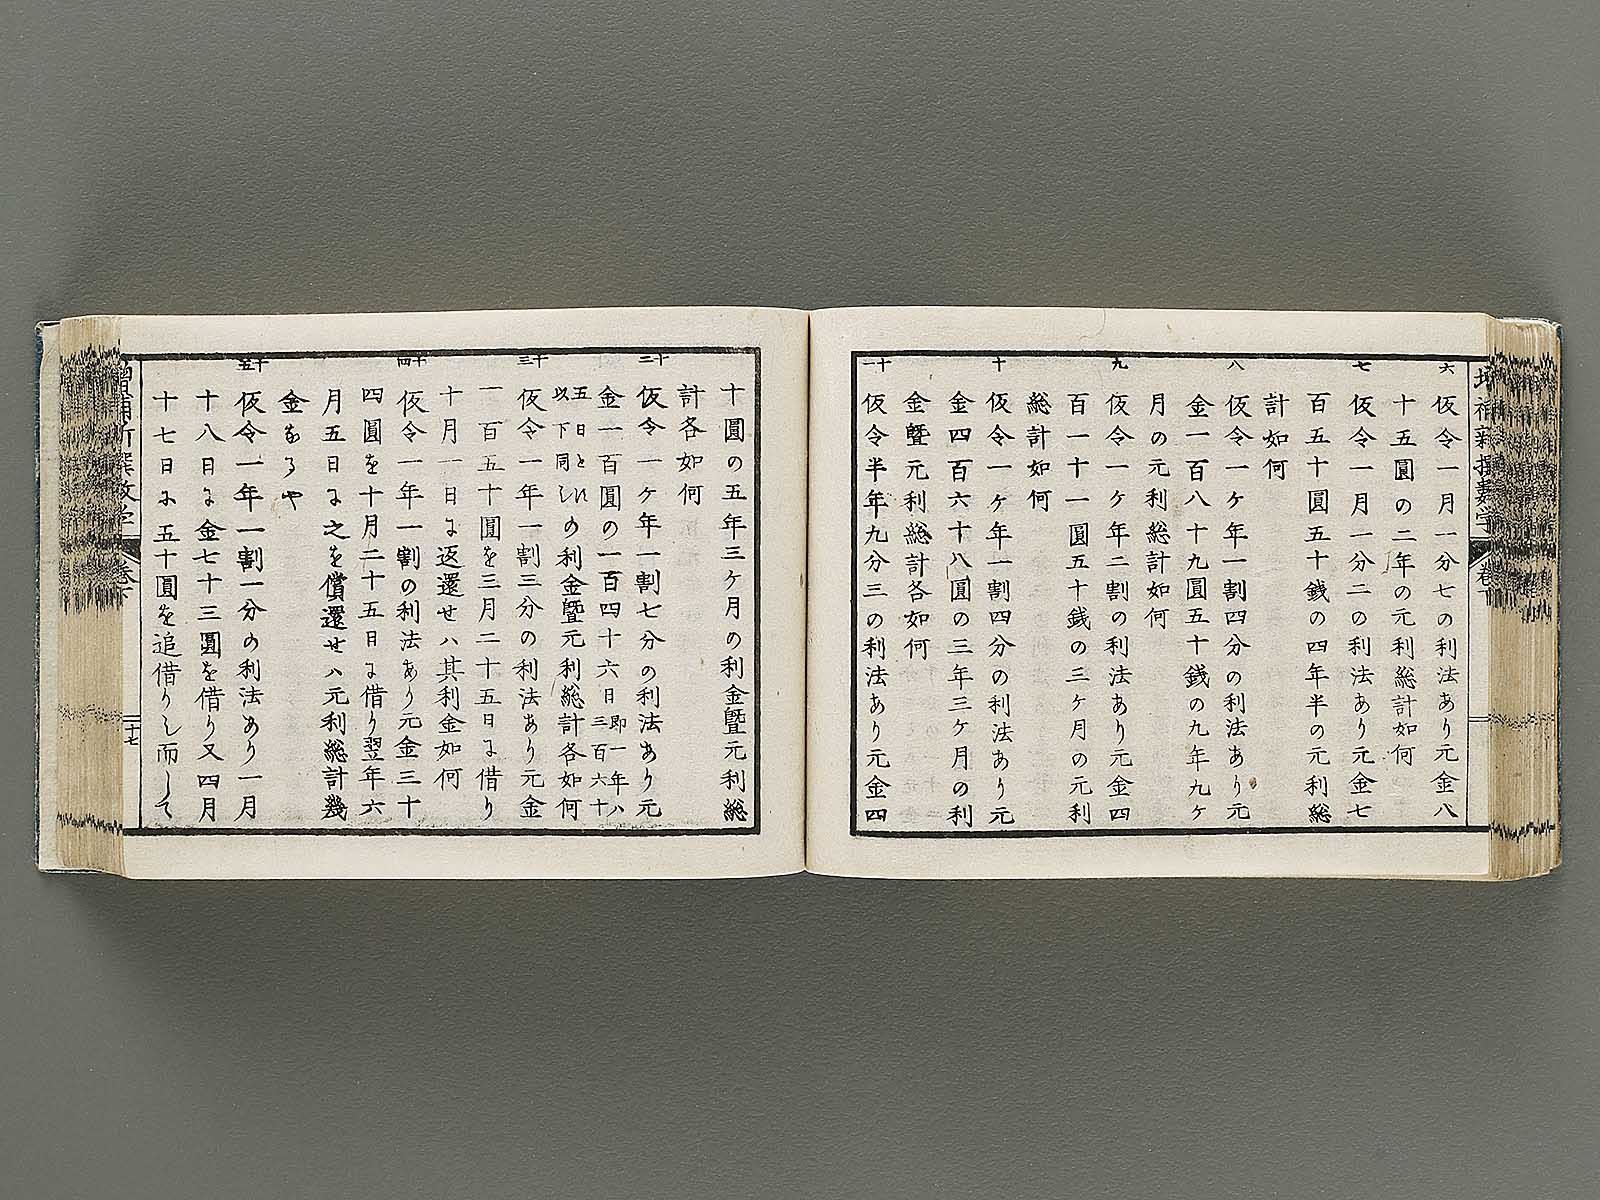 六
仮令一月一分七の利法あり元金八
十五圓の二年の元利総計如何
七
仮令一月一分二の利法あり元金七
百五十圓五十銭の四年半の元利総
計如何
八
仮令一ヶ年一割四分の利法あり元
金一百八十九圓五十銭の九年九ヶ
月の元利総計如何
九
仮令一ヶ年二割の利法あり元金四
百一十一圓五十銭の三ヶ月の元利
総計如何
十
仮令一ヶ年一割四分の利法あり元
金四百六十八圓の三年三ヶ月の利
金曁元利総計各如何
十一
仮令半年九分三の利法あり元金四
十圓の五年三ヶ月の利金曁元利総
計各如何
十二
仮令一ヶ年一割七分の利法あり元
金一百圓の一百四十六日即一年ハ三百六十
五日とす以下同しの利金曁元利総計各如何
十三
仮令一年一割三分の利法あり元金
一百五十圓を三月二十五日に借り
十月一日に返還せハ其利金如何
十四
仮令一年一割の利法あり元金三十
四圓を十月二十五日に借り翌年六
月五日に之を償還せハ元利総計幾
金なるや
十五
仮令一年一割一分の利法あり一月
十八日に金七十三圓を借り又四月
十七日に五十圓を追借りし而して
増補新撰数学
巻下
二十七